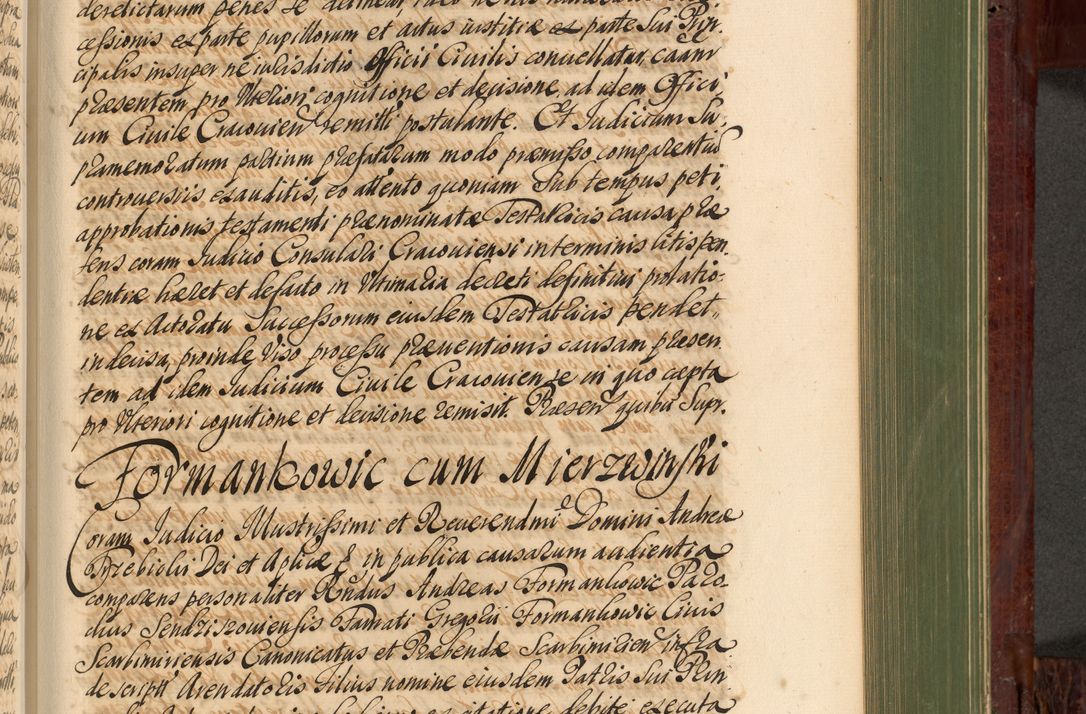 derelictarum penes se
cessionis ex parte pupillorum et actus iustitiæ ex parte Sui Prin.
cipalis insuper ne iurisdictio Officii Civilis convellatur, caam
præsentem pro Vlteriori cognitione et decisione ad idem Offici,
um Civile Cracovien remitti postulante. Et Judicium Su,
pramemoratum partium præfatarum modo præmisso comparentiũ
controversiis exauditis, eo attento quoniam sub tempus peti,
approbationis testamenti prænominatæ Testatricis causa præ
sens coram Judicio Consulari Cracoviensi in terminis litis pen
dentiæ hæret et defacto in Vltimaria decreti definitivi prolatio-
ne ex Actoratu Successorum eiusdem Testatricis pendet„
indecisa, proinde Viso processu præventionis causam præsen
tem ad idem Judicium Civile Cracoviense in quo cæpta
pro Vlteriori cognitione et decisione remisit. Præsen quibus Supr.
Formankowic cum Mierzwinski
Coram Judicio Illustrissimi et Reverendmi D. Domini Andreæ
Trzebicki Dei et Aplicæ &c in publica causarum audientia
comparens personaliter Rndus Andreas Formankowic Paro
chus Sendziszoviensis Famati Gregorii Formankowic Civis
Scarbimiriensis Canonicatus et Præbendæ Scarbimirien infra
descripti Arendatoris filius nomine eiusdem Patris Sui Prin
citatione debite executa